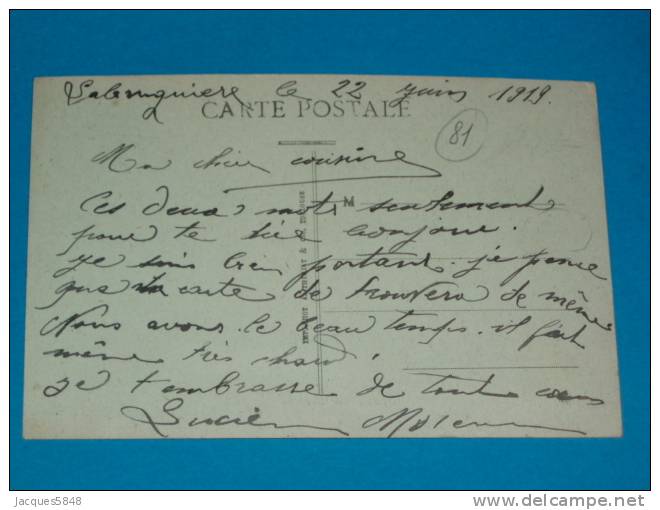 Labruguière le 22 juin 1919.
CARTE POSTALE
81
Ma chère cousine
Ces deux mots seulement
M
pour te dire bonjour.
je suis bien portant. je pense
que ta carte te trouvera de même
Nous avons le beau temps. il fait
même très chaud.
je t'embrasse de tout cœur
Lucien
Jacques5848
delcampe.net